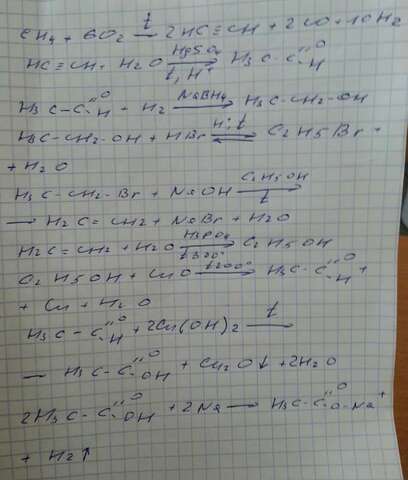 CH4 + 6O2 —t→ 2HC≡CH + 2CO + 10H2
HC≡CH + H2O —HgSO4 / t, H+→ H3C-C(=O)H
H3C-C(=O)H + H2 —NaBH4→ H3C-CH2-OH
H3C-CH2-OH + HBr ⇌ H+; t C2H5Br +
+ H2O
H3C-CH2-Br + NaOH —C2H5OH / t→
→ H2C=CH2 + NaBr + H2O
H2C=CH2 + H2O —H3PO4 / t 300°→ C2H5OH
C2H5OH + CuO —t 200°→ H3C-C(=O)H +
+ Cu + H2O
H3C-C(=O)H + 2Cu(OH)2 —t→
→ H3C-C(=O)OH + Cu2O↓ + 2H2O
2H3C-C(=O)OH + 2Na → H3C-C(=O)O-Na +
+ H2↑